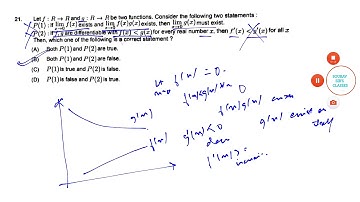 21. Let f : R → R and g : R → R be two functions. Consider the following two statements :
P(1) : If lim f(x) exists and lim f(x)g(x) exists, then lim g(x) must exist.
P(2) : If f, g are differentiable with f(x) < g(x) for every real number x, then f'(x) < g'(x) for all x
Then, which one of the following is a correct statement ?
(A) Both P(1) and P(2) are true.
(B) Both P(1) and P(2) are false.
(C) P(1) is true and P(2) is false.
(D) P(1) is false and P(2) is true.
f(x) = 0.
f(x)g(x) = 0
f(x)g(x) exists
g(x) exist or
g(x)
f(x)
g'(x) < 0
SOURAV
SIR'S
CLASSES